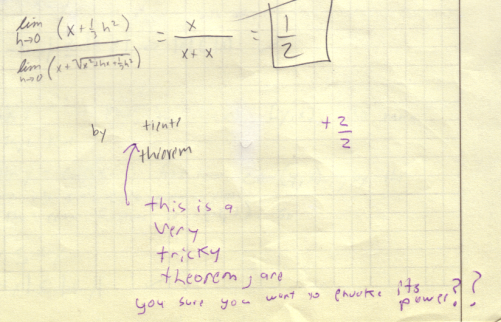 lim h→0 (x + 1/3 h²) / lim h→0 (x + √x²+2hx+1/3h²) = x / x + x = 1/2
by tiente
theorem
+2/2
this is a
very
tricky
theorem, are
you sure you want to envoke its power??